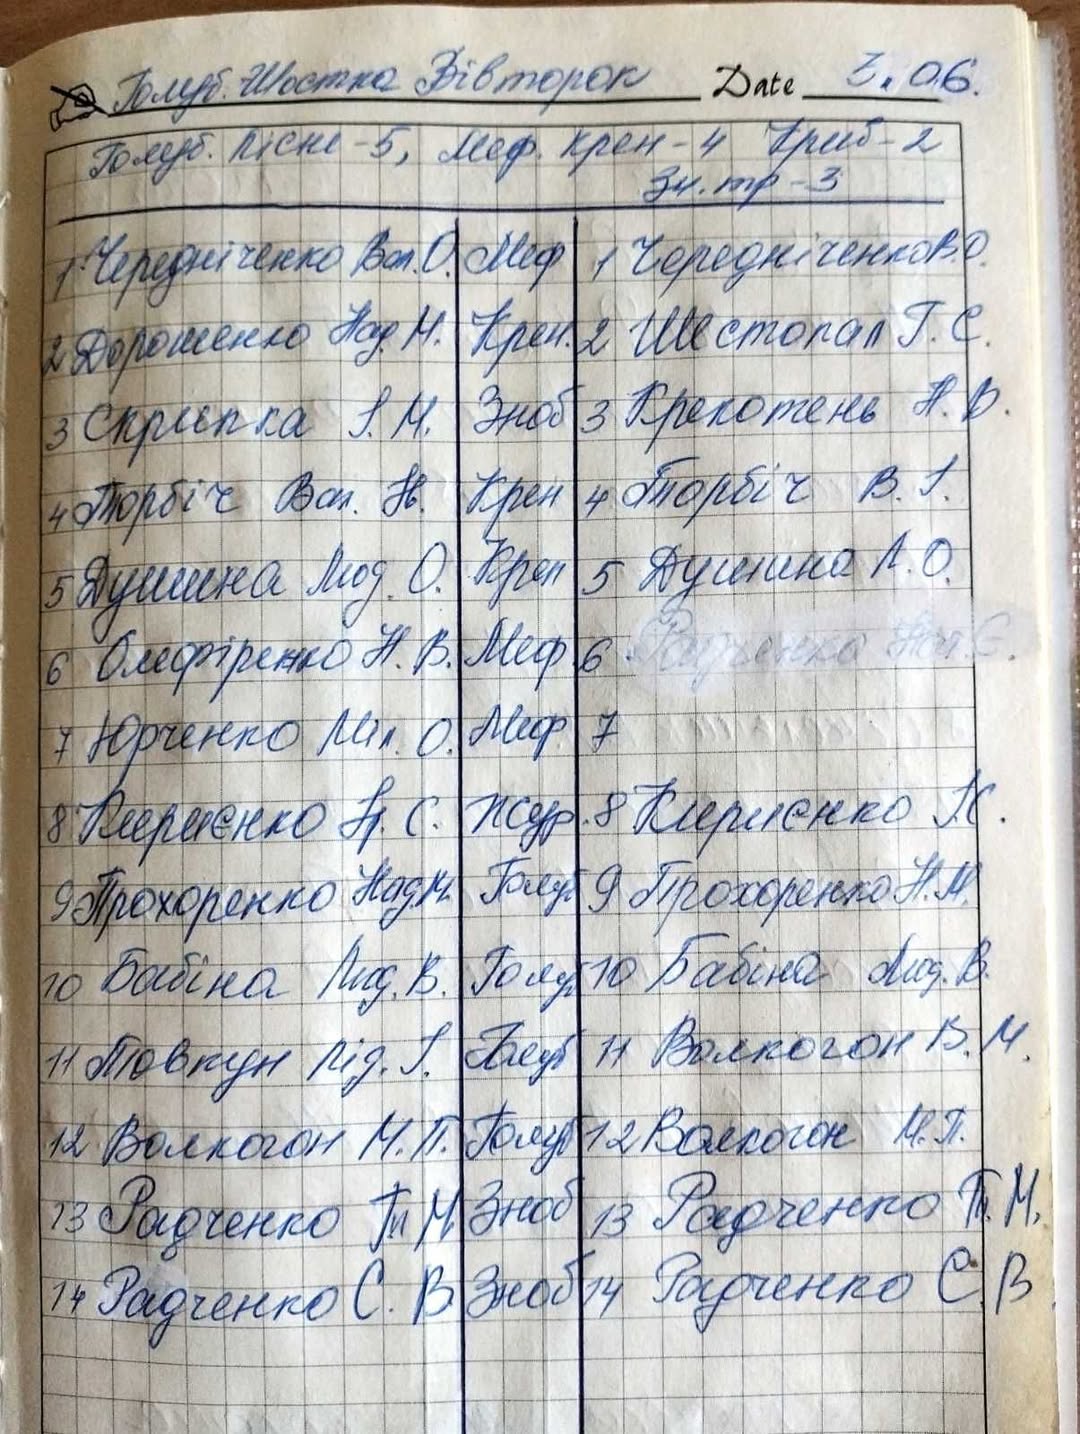 Голуб. Шостка Вівторок Date 3.06.
Голуб. Пісне-5, Меф. Крен-4 Криб-2
Зн. тр-3
1 Чередніченко Вал. О. Меф 1 Чередніченко В.О.
2 Дорошенко Над. М. Крен. 2 Шестопал Г. С.
3 Скрипка І. М. Зноб 3 Крекотень Н. В.
4 Торбіч Вал. Ів. Крен 4 Торбіч В. І.
5 Душина Люд. О. Крен 5 Душина Л. О.
6 Олефіренко Н. В. Меф. 6 Радченко Нат. Є.
7 Юрченко Міл. О. Меф 7
8 Кириєнко Ір. С. Жур. 8 Кириєнко І.С.
9 Прохоренко Над М. Голуб 9 Прохоренко Н. М.
10 Бабіна Люд. В. Голуб 10 Бабіна Люд. В.
11 Товкун Лід. І. Голуб 11 Волкогон В. М.
12 Волкогон М. П. Голуб 12 Волкогон М. П.
13 Радченко Т. М. Зноб 13 Радченко Т. М.
14 Радченко С. В Зноб 14 Радченко С. В